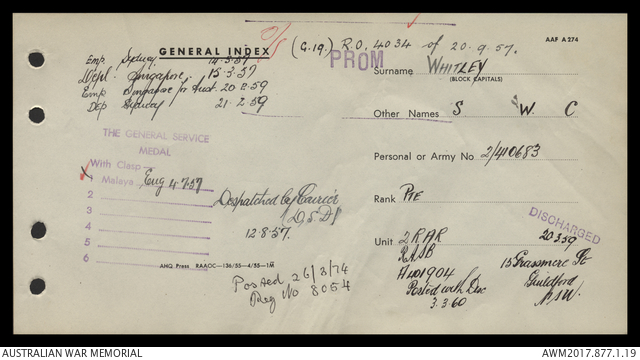 O/S
(G.19) R.O. 4034 of 20.9.57.
AAF A 274
GENERAL INDEX
PROM
Emp Sydney 14.3.57
Depl. Singapore 15.3.57
Emp Singapore for Aust. 20.2.59
Dep Sydney 21.2.59
Surname WHITLEY
(BLOCK CAPITALS)
Other Names S W. C
THE GENERAL SERVICE
MEDAL
With Clasp
Malaya
Eng 4.7.57
2
3
4
5
6
Personal or Army No 2/410683
Despatched by Courier
(D.S.D)
12.8.57.
Rank PTE
DISCHARGED
20 3 59
Unit 2 RAR
RASB
15 Grassmere St
Guildford
NSW.
Posted with Disc
3.3.60
AHQ Press RAAOC—136/55—4/55—1M
Posted 26/3/74
Reg No 8054
AUSTRALIAN WAR MEMORIAL
AWM2017.877.1.19